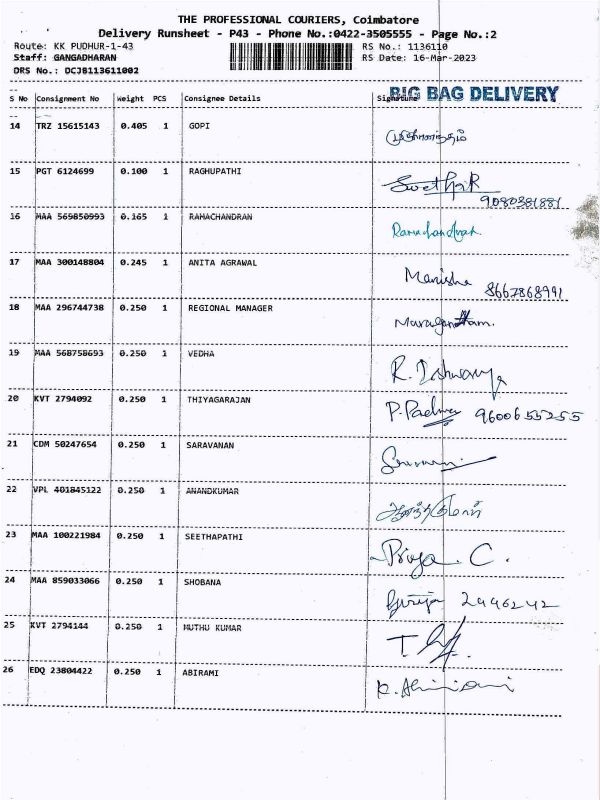 THE PROFESSIONAL COURIERS, Coimbatore
Delivery Runsheet - P43 - Phone No.:0422-3505555 - Page No.:2
Route: KK PUDHUR-1-43 RS No.: 1136110
Staff: GANGADHARAN RS Date: 16-Mar-2023
DRS No.: DCJB113611002
BIG BAG DELIVERY
S No Consignment No Weight PCS Consignee Details Signature
14 TRZ 15615143 0.405 1 GOPI
15 PGT 6124699 0.100 1 RAGHUPATHI Swetha R
9080381881
16 MAA 569850993 0.165 1 RAMACHANDRAN Ramachandran
17 MAA 300148804 0.245 1 ANITA AGRAWAL Manisha 8667868991
18 MAA 296744738 0.250 1 REGIONAL MANAGER
19 MAA 568758693 0.250 1 VEDHA R. Ishwarya
20 KVT 2794092 0.250 1 THIYAGARAJAN P. Padma 9600655255
21 CDM 50247654 0.250 1 SARAVANAN
22 VPL 401845122 0.250 1 ANANDKUMAR ஆனந்தகுமார்
23 MAA 100221984 0.250 1 SEETHAPATHI Priya . C.
24 MAA 859033066 0.250 1 SHOBANA Girija 2446242
25 KVT 2794144 0.250 1 MUTHU KUMAR
26 EDQ 23804422 0.250 1 ABIRAMI K. Abirami